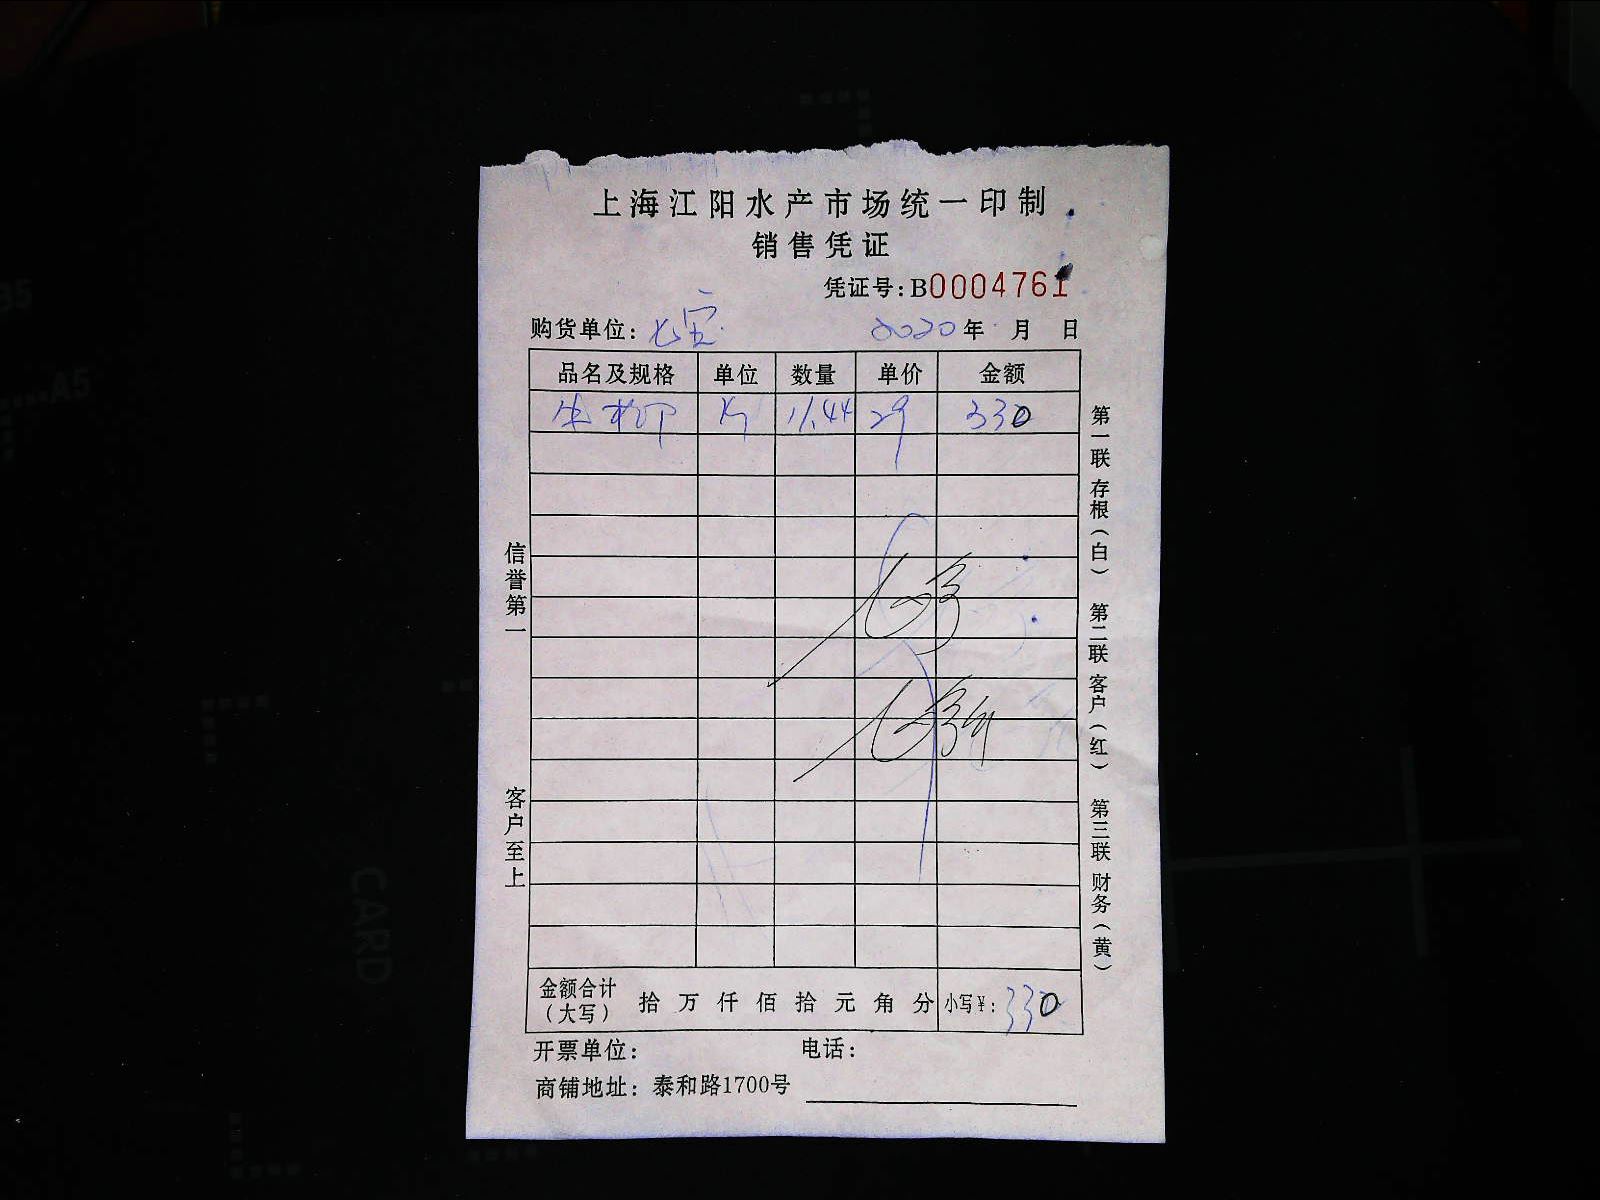 上海江阳水产市场统一印制
销售凭证
凭证号:B0004761
购货单位: 七宝 2020年 月 日
品名及规格 单位 数量 单价 金额
斤 11.44 29 330
信誉第一
客户至上
第一联 存根(白) 第二联 客户(红) 第三联 财务(黄)
金额合计(大写) 拾 万 仟 佰 拾 元 角 分 小写¥: 330
开票单位: 电话:
商铺地址: 泰和路1700号
B5
A5
CARD